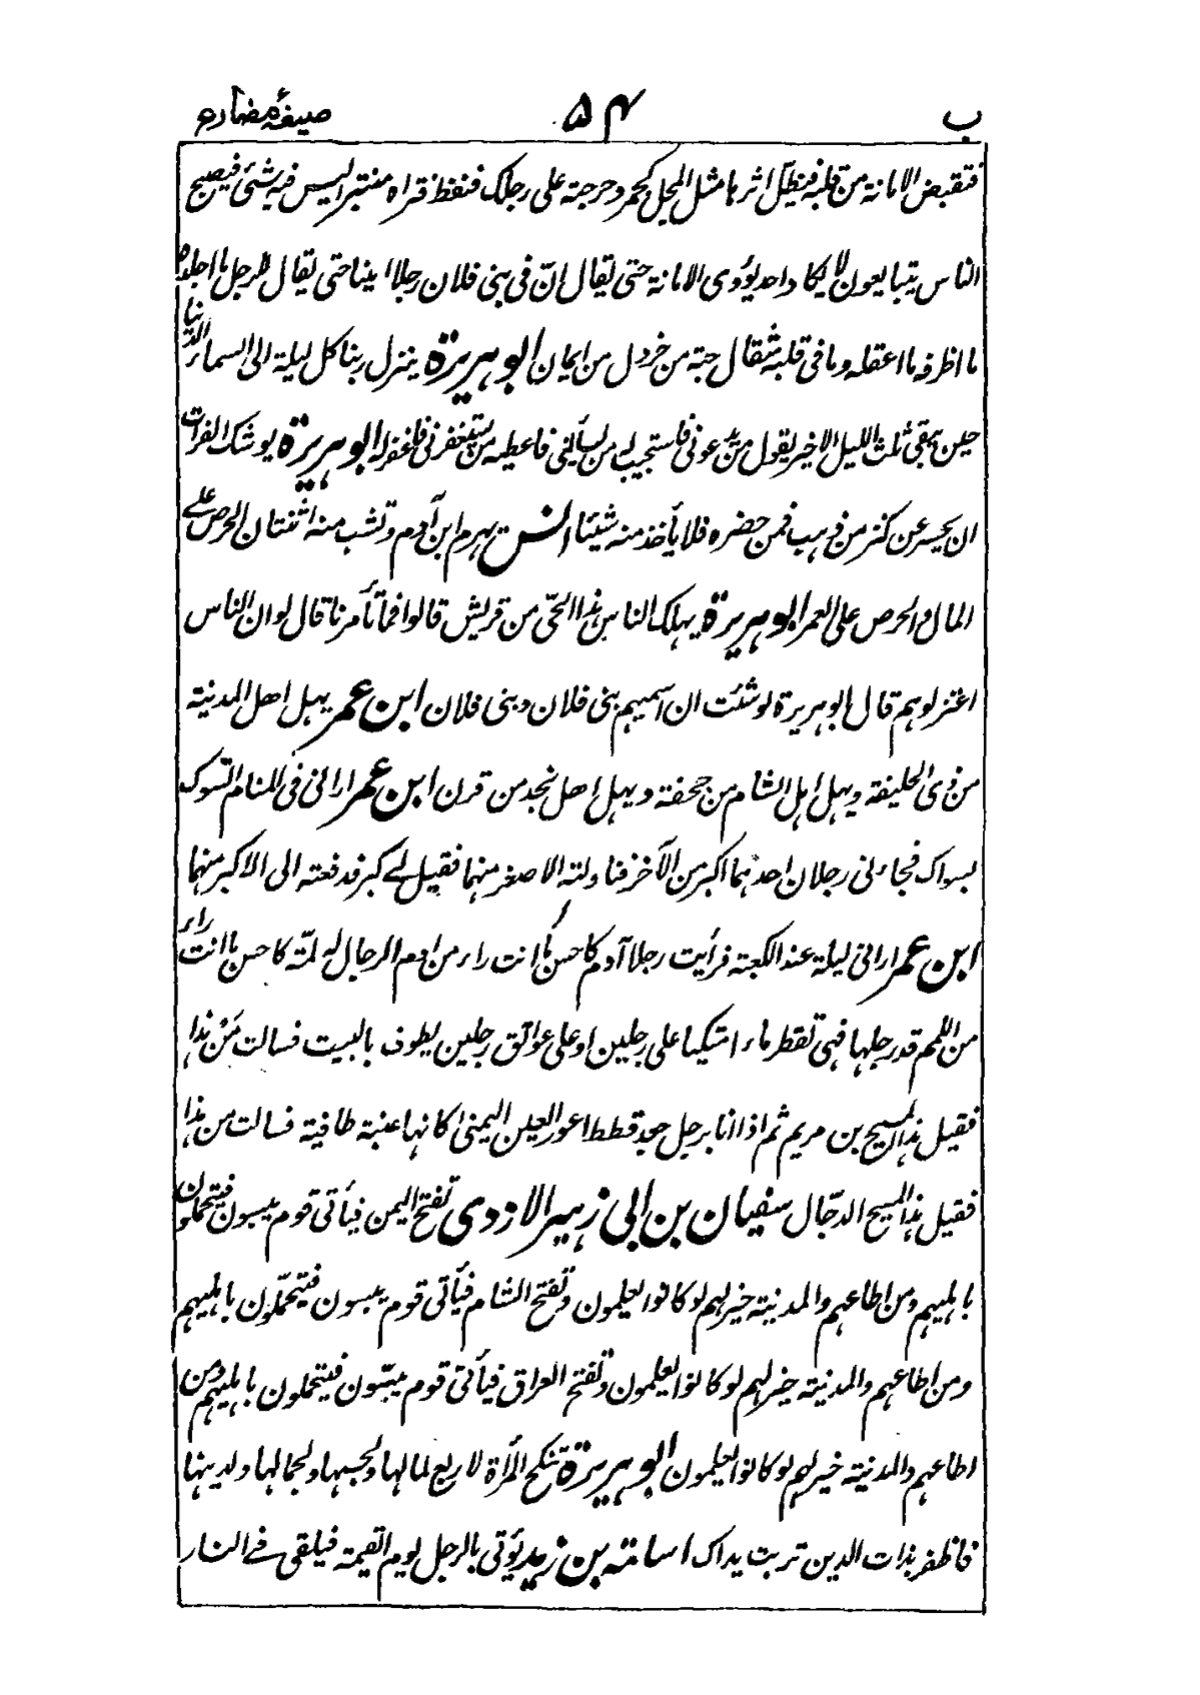 ب ۵۴ صیغۂ مضارع
فتقبض الامانة من قلبه فیظل اثرها مثل المجل کجمر دحرجته علی رجلک فنفط فتراه منتبرا لیس فیه شئی فیصبح
الناس یتبایعون لا یکاد احد یؤدی الامانة حتی یقال انّ فی بنی فلان رجلا امینا حتی یقال للرجل ما اجلده
ما اظرفه ما اعقله وما فی قلبه مثقال حبة من خردل من ایمان ابو هریرة ینزل ربنا کل لیلة الی السماء الدنیا
حین یبقی ثلث اللیل الاخیر یقول من یدعونی فاستجیب له من یسألنی فاعطیه من یستغفرنی فاغفر له ابو هریرة یوشک الفرات
ان یحسر عن کنز من ذهب فمن حضره فلا یأخذ منه شیئا انس یهرم ابن آدم وتشب منه اثنتان الحرص علے
المال والحرص علی العمر ابو هریرة یهلک الناس هذا الحیّ من قریش قالوا فما تأمرنا قال لو ان الناس
اعتزلوهم قال ابو هریرة لو شئت ان اسمیهم بنی فلان وبنی فلان ابن عمر یهل اهل المدینة
من ذی الحلیفة ویهل اهل الشام من جحفة ویهل اهل نجد من قرن ابن عمر ارانی فی المنام اتسوک
بسواک فجاءنی رجلان احدهما اکبر من الآخر فناولته الاصغر منهما فقیل لے کبر فدفعته الی الاکبر منهما
ابن عمر ارانی لیلة عند الکعبة فرأیت رجلا آدم کاحسن ما انت راء من ادم الرجال له لمّة کاحسن ما انت راء
من اللمم قد رجلها فهی تقطر ماء متکیا علی رجلین او علی عواتق رجلین یطوف بالبیت فسالت مَنْ هذا
فقیل هذا المسیح بن مریم ثم اذا انا برجل جعد قطط اعور العین الیمنی کانها عنبة طافیة فسالت من هذا
فقیل هذا المسیح الدجّال سفیان بن ابی زهیر الازدی تفتح الیمن فیأتی قوم یبسون فیتحملون
باهلیهم ومن اطاعهم والمدینة خیر لهم لو کانوا یعلمون وتفتح الشام فیأتی قوم یبسون فیتحمّلون باهلیهم
ومن اطاعهم والمدینة خیر لهم لو کانوا یعلمون وتفتح العراق فیأتی قوم یبسّون فیتحملون باهلیهم ومن
اطاعهم والمدینة خیر لهم لو کانوا یعلمون ابو هریرة تنکح المرأة لاربع لمالها ولحسبها ولجمالها ولدینها
فاظفر بذات الدین تربت یداک اسامة بن زید یؤتی بالرجل یوم القیمة فیلقی فے النار